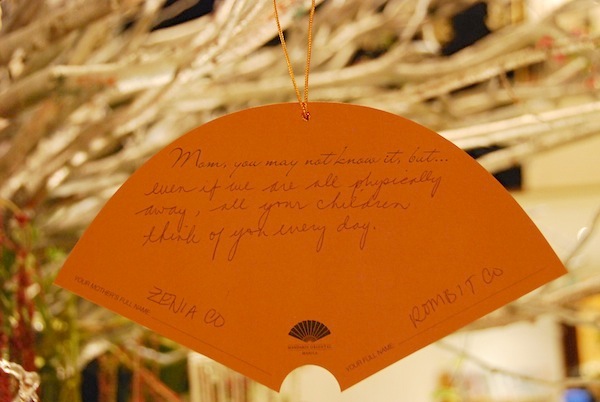 Mom, you may not know it, but...
even if we are all physically
away, all your children
think of you every day.
YOUR MOTHER'S FULL NAME
ZENIA CO
YOUR FULL NAME
ROMBIT CO